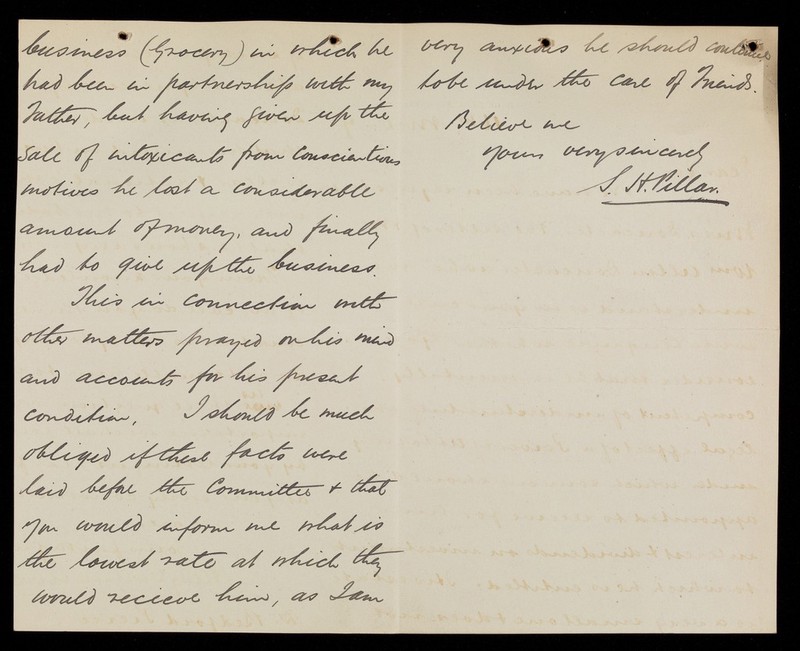 business (Grocery) in which he
had been in partnership with my
Father, but having given up the
Sale of intoxicants from Conscientious
motives he lost a considerable
amount of money, and finally
had to give up the business.
This in connection with
other matters prayed on his mind
and accounts for his present
condition. I should be much
obliged if these facts were
laid before the Committee & that
you would inform me what is
the lowest rate at which they
would recieve him, as I am
very anxious he should continue
to be under the care of Friends.
Believe me
yours very sincerely
S. H. Pillar.